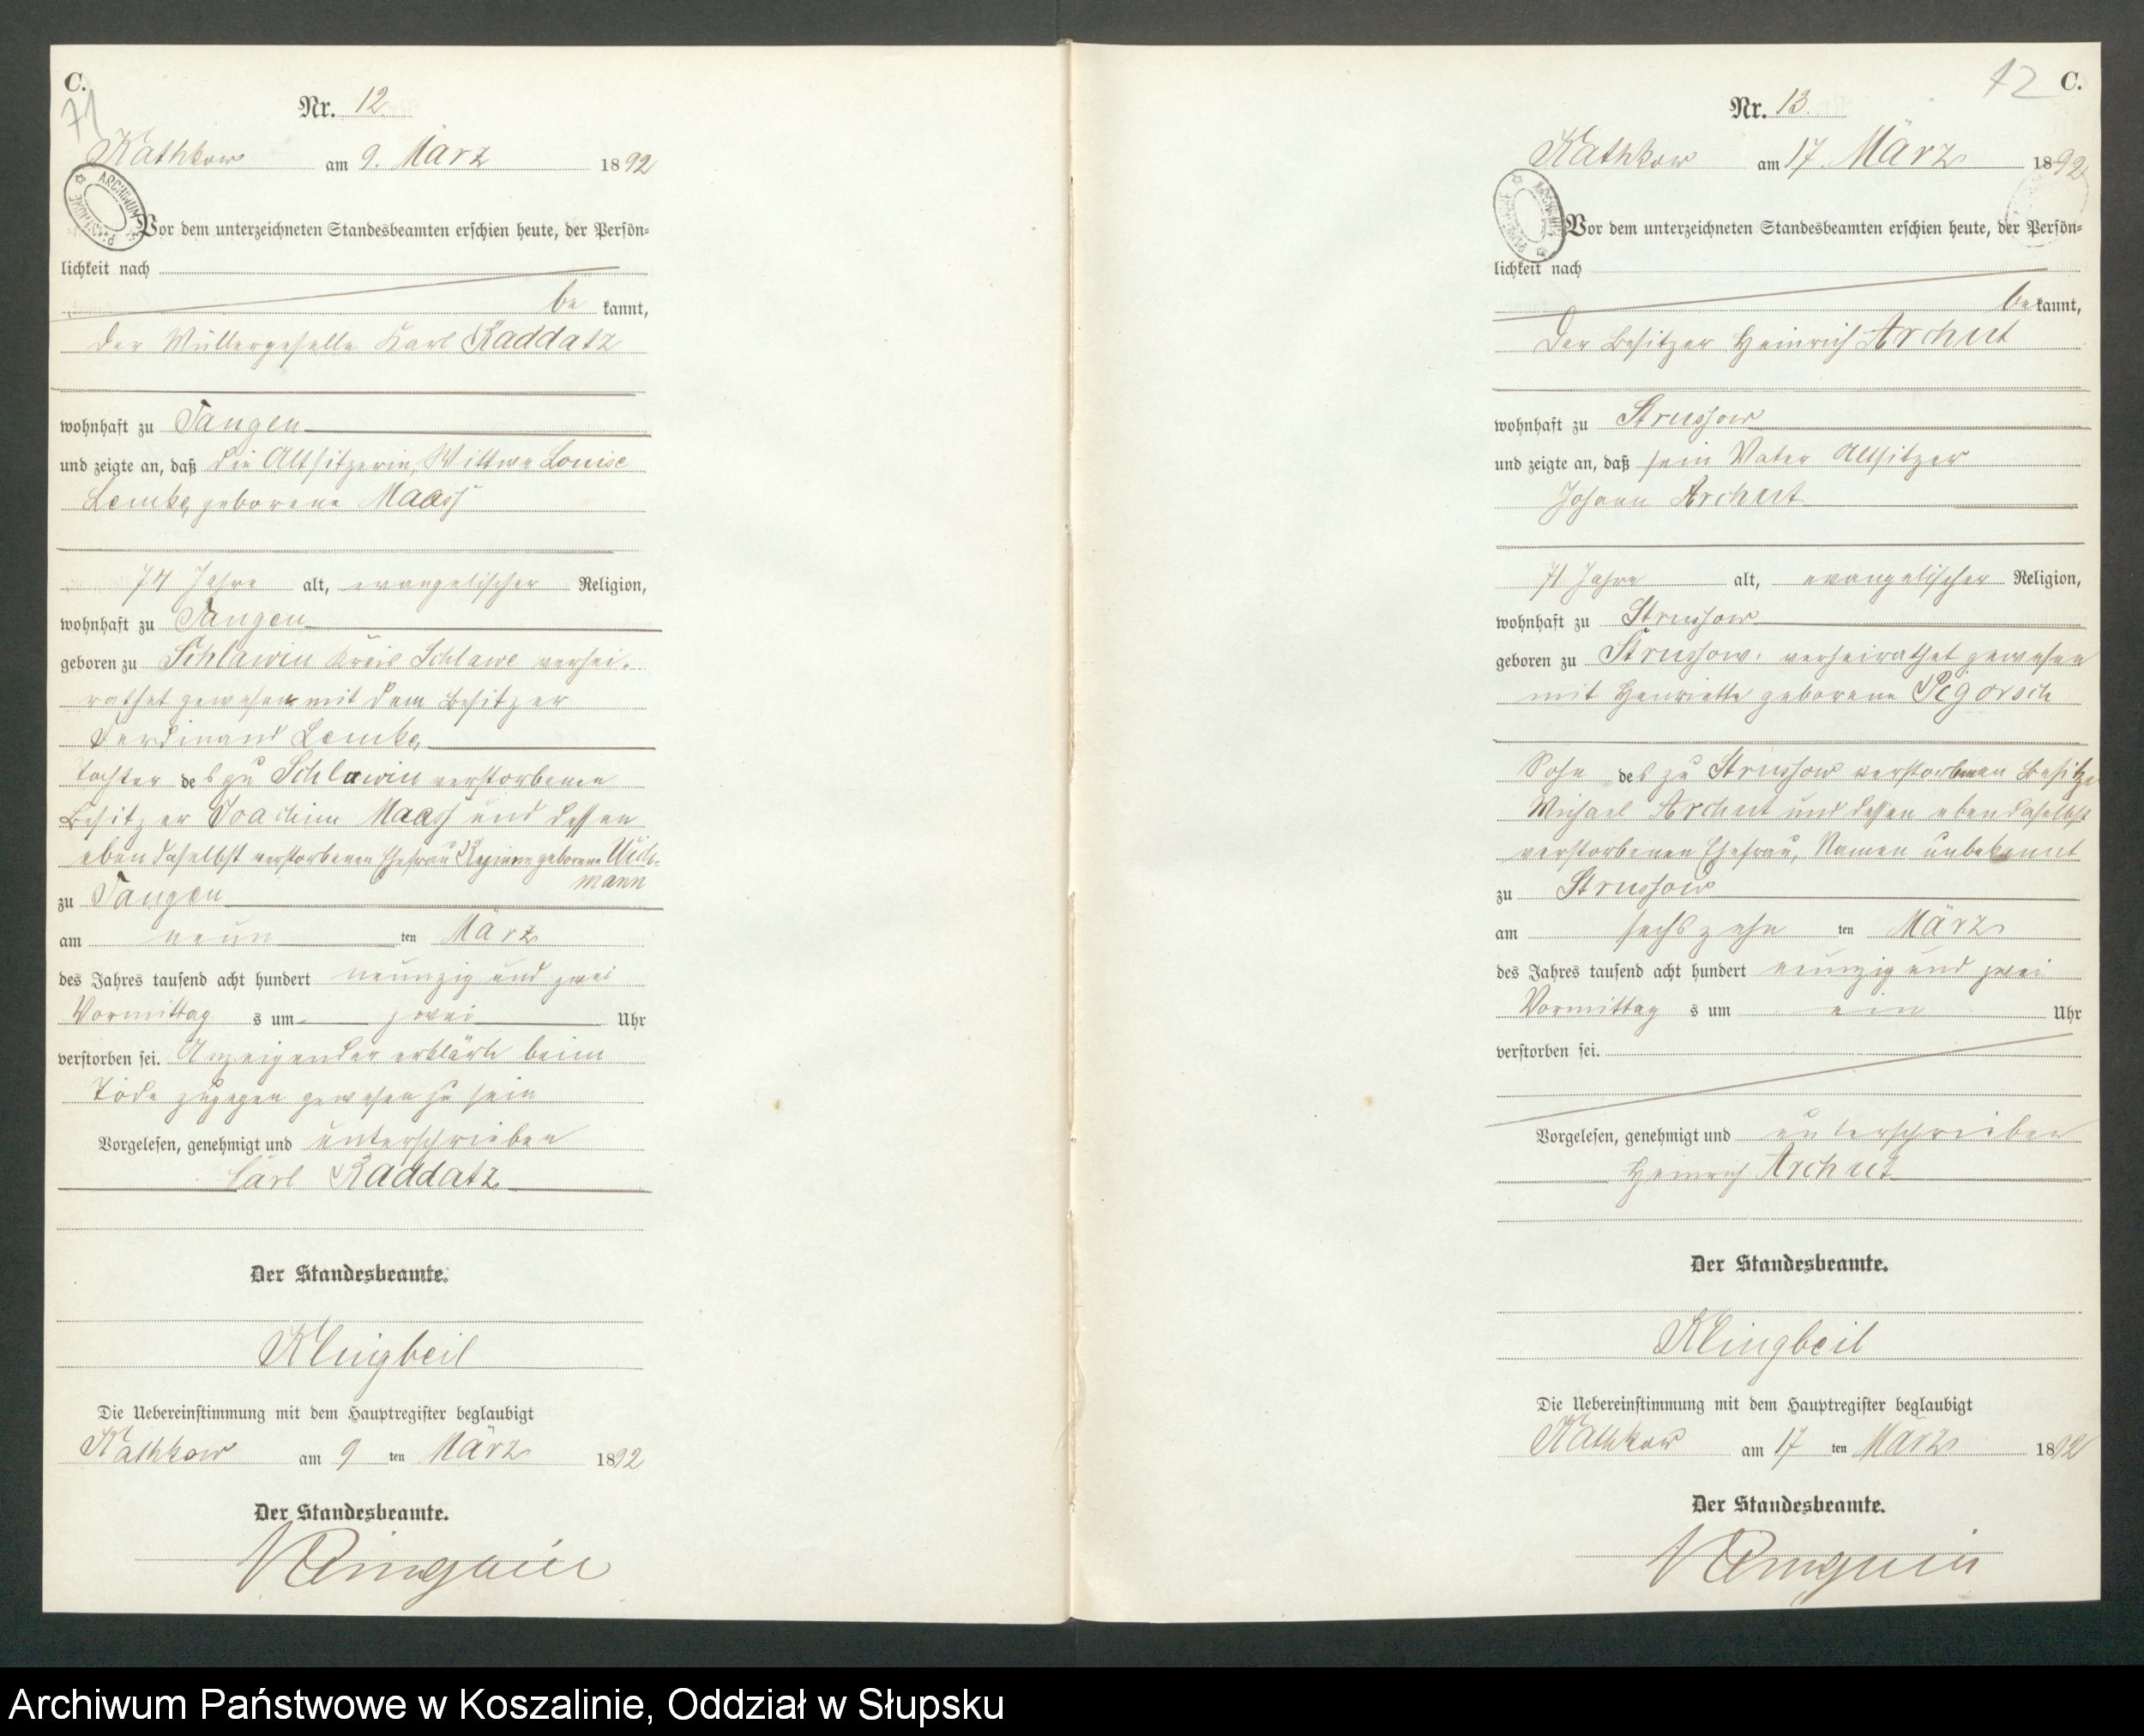 C.
71
Nr. 12.
Kathkow am 9. März 1892
ARCHIWUM
Vor dem unterzeichneten Standesbeamten erschien heute, der Persön-
lichkeit nach
be kannt,
der Müllergeselle Karl Raddatz
wohnhaft zu Tangen
und zeigte an, daß die Altsitzerin, Wittwe Louise
Lemke, geborene Maass
74 Jahre alt, evangelischer Religion,
wohnhaft zu Tangen
geboren zu Schlawin Kreis Schlawe verhei-
rathet gewesen mit dem Besitzer
Ferdinand Lemke,
Tochter des zu Schlawin verstorbenen
Besitzer Joachim Maass und dessen
ebendaselbst verstorbenen Ehefrau geborene
mann
zu Tangen
am neun ten März
des Jahres tausend acht hundert neunzig und zwei
Vormittag s um zwei Uhr
verstorben sei. Anzeigender erklärte beim
Tode zugegen gewesen zu sein
Vorgelesen, genehmigt und unterschrieben
Carl Raddatz
Der Standesbeamte.
Klingbeil
Die Uebereinstimmung mit dem Hauptregister beglaubigt
Kathkow am 9 ten März 1892
Der Standesbeamte.
Klingbeil
12 C.
Nr. 13.
Kathkow am 17. März 1892
Vor dem unterzeichneten Standesbeamten erschien heute, der Persön-
lichkeit nach
be kannt,
der Besitzer Heinrich Archut
wohnhaft zu Strussow
und zeigte an, daß sein Vater Altsitzer
Johann Archut
71 Jahre alt, evangelischer Religion,
wohnhaft zu Strussow
geboren zu Strussow. verheirathet gewesen
mit Henriette geborene Pigorsch
Sohn des zu Strussow verstorbenen Besitzer
Michael Archut und dessen ebendaselbst
verstorbenen Ehefrau, Namen unbekannt
zu Strussow
am sechszehn ten März
des Jahres tausend acht hundert neunzig und zwei
Vormittag s um ein Uhr
verstorben sei.
Vorgelesen, genehmigt und unterschrieben
Heinrich Archut
Der Standesbeamte.
Klingbeil
Die Uebereinstimmung mit dem Hauptregister beglaubigt
Kathkow am 17 ten März 1892
Der Standesbeamte.
Klingbeil
Archiwum Państwowe w Koszalinie, Oddział w Słupsku